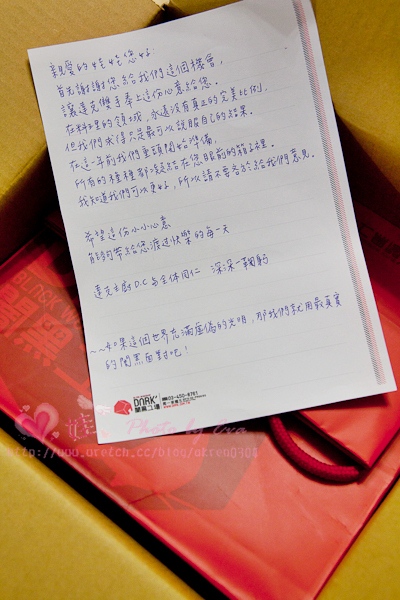 親愛的娃娃您好:
首先謝謝您給我們這個機會,
讓達克雙手奉上這份心意給您。
在料理的領域,永遠沒有真正的完美比例.
但我們求得只是最可以說服自己的結果。
在這一年前我們重頭開始準備,
所有的種種都凝結在您眼前的箱子裡.
我知道我們可以更好,所以請不要吝於給我們意見.
希望這份小小心意
能夠帶給您渡過快樂的每一天
達克主廚D.C 与全体同仁 深深一鞠躬
~~如果這個世界充滿虛偽的光明,那我們就用最真實
的闇黑面對吧!
DARK
闇黑工場
03-450-8761
Photo by Eva
http://www.wretch.cc/blog/